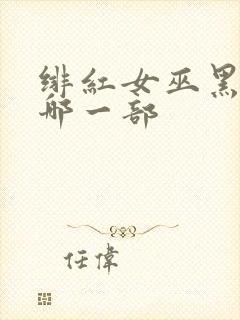 绯紅女巫黑
哪一部
任偉